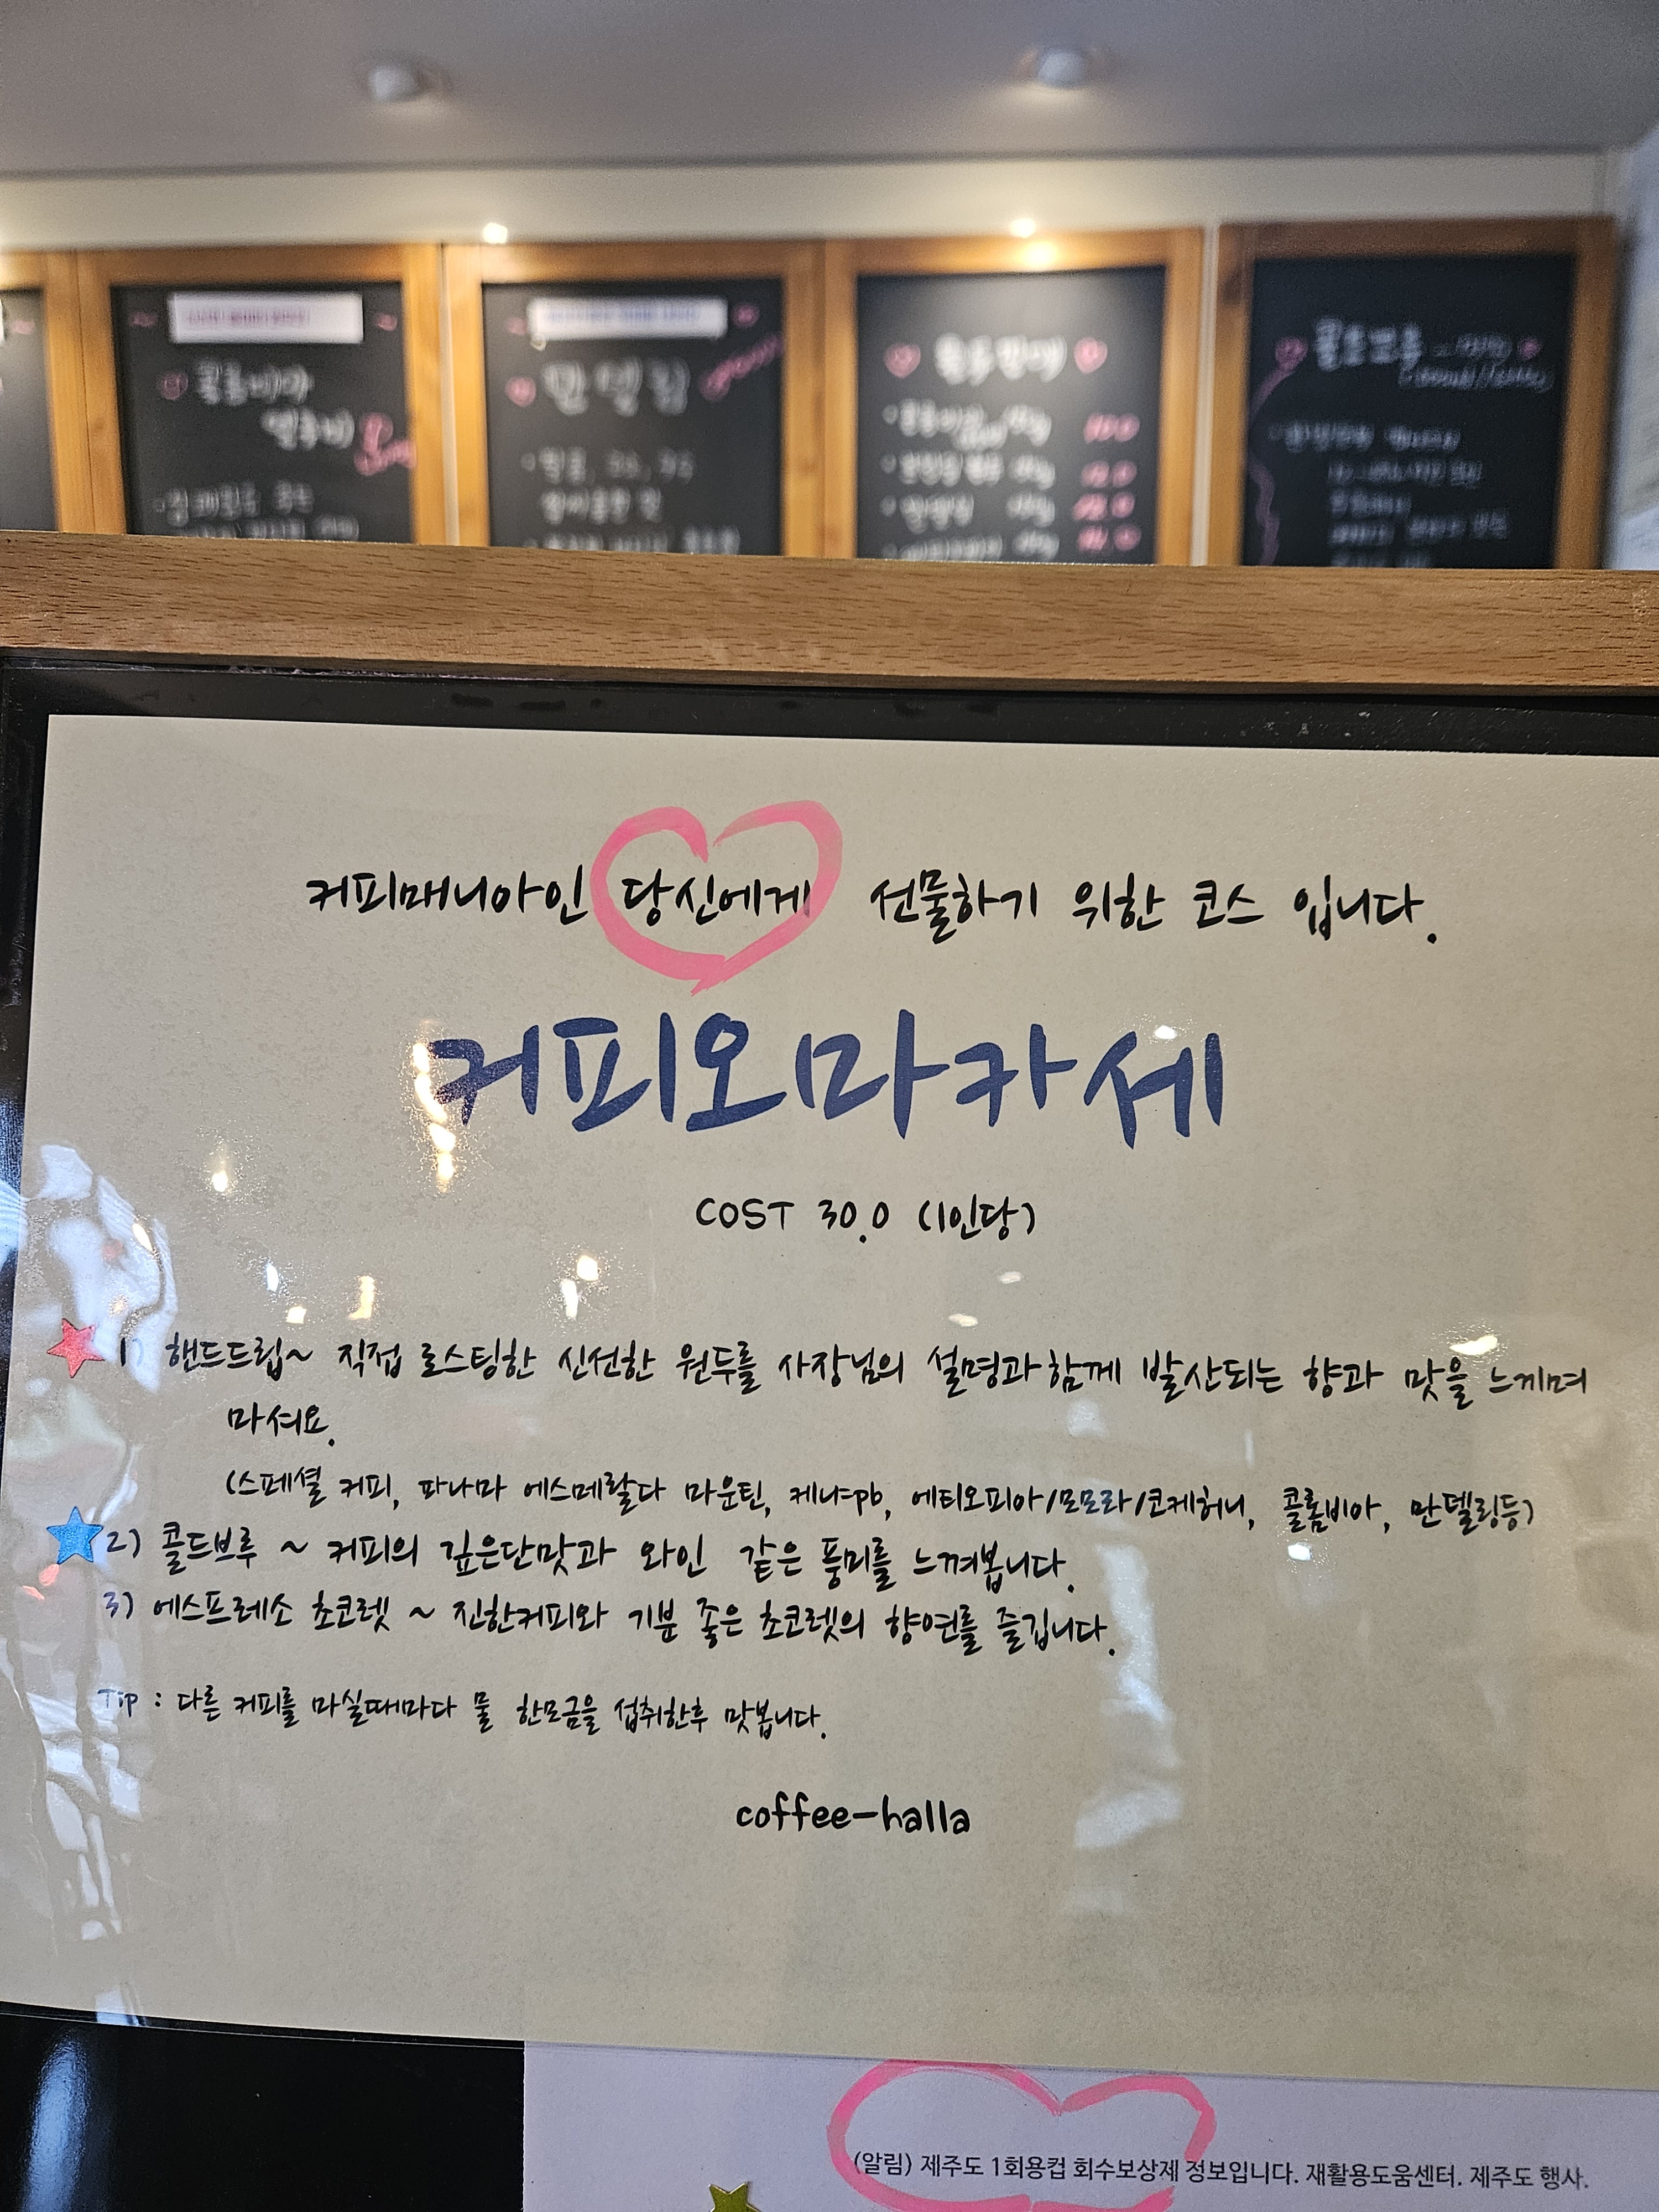 콜롬비아
만델링
원두판매
콜드브루
커피매니아인 당신에게 선물하기 위한 코스 입니다.
커피오마카세
COST 30.0 (1인당)
1) 핸드드립~ 직접 로스팅한 신선한 원두를 사장님의 설명과함께 발산되는 향과 맛을 느끼며
마셔요.
(스페셜 커피, 파나마 에스메랄다 마운틴, 케냐pb, 에티오피아/모모라/코케허니, 콜롬비아, 만델링등)
2) 콜드브루 ~ 커피의 깊은단맛과 와인 같은 풍미를 느껴봅니다.
3) 에스프레소 초코렛 ~ 진한커피와 기분 좋은 초코렛의 향연를 즐깁니다.
Tip : 다른 커피를 마실때마다 물 한모금을 섭취한후 맛봅니다.
coffee-halla
(알림) 제주도 1회용컵 회수보상제 정보입니다. 재활용도움센터. 제주도 행사.